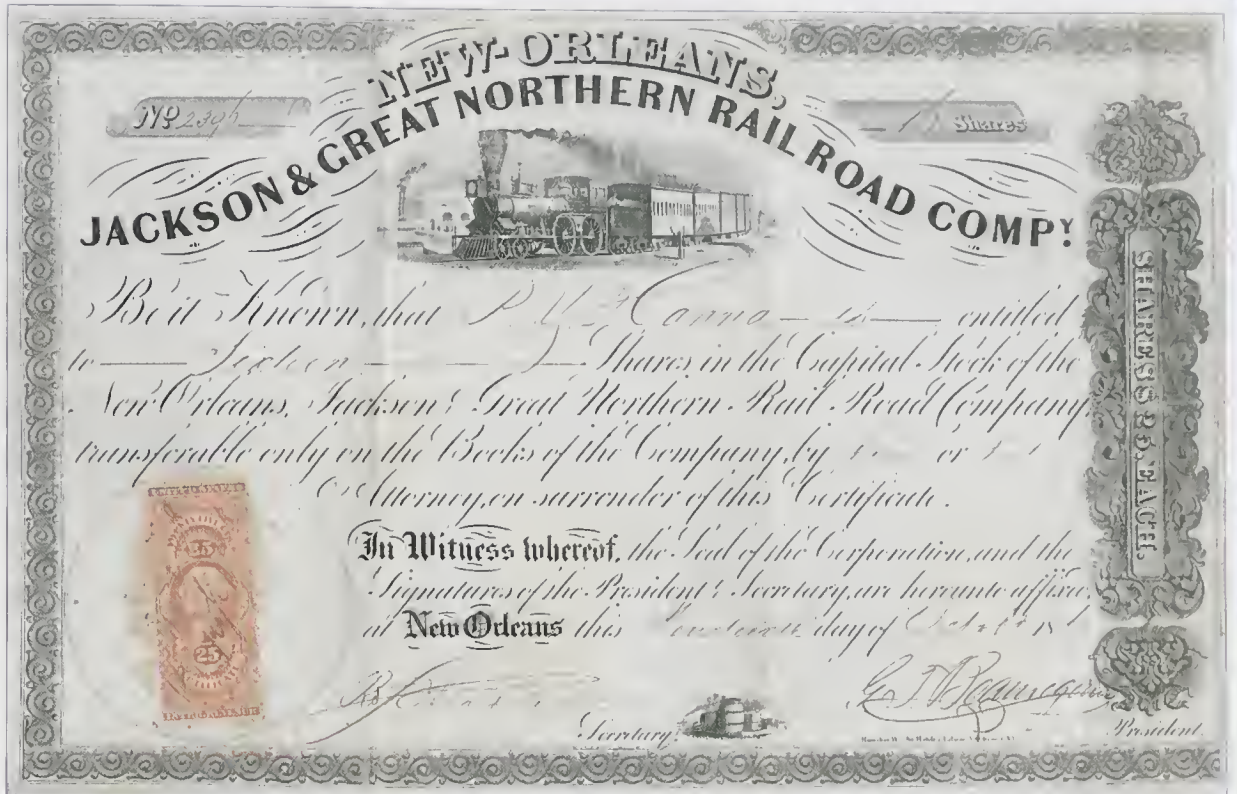 NEW-ORLEANS,
JACKSON & GREAT NORTHERN RAIL ROAD COMPY.
No
Shares
Be it Known, that Hanna is entitled
to Sixteen Shares in the Capital Stock of the
New Orleans, Jackson & Great Northern Rail Road Company,
transferable only on the Books of the Company, by or
Attorney, on surrender of this Certificate.
In Witness whereof, the Seal of the Corporation, and the
Signatures of the President & Secretary, are hereunto affixed
at New Orleans this day of
G T Beauregard
Secretary.
President.
SHARES $25, EACH.
25
25